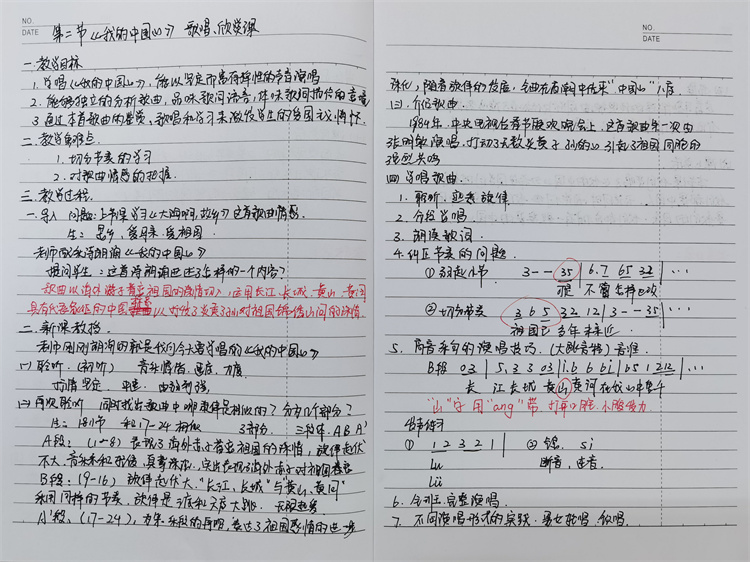 NO.
DATE
第二节《我的中国心》 歌唱、欣赏课
一.教学目标
1.学唱《我的中国心》,能以坚定而富有弹性的声音演唱
2.能够独立的分析歌曲,品味歌词语言,体味歌词描绘的意境
3.通过本首歌曲的鉴赏、歌唱和学习来激发学生的爱国主义情怀.
二.教学重难点
1.切分节奏的学习
2.对歌曲情感的把握
三.教学过程
一.导入 问题:上节课学习《大海啊,故乡》这首歌曲情感.
生:思乡,爱母亲.爱祖国.
老师配乐诗朗诵《我的中国心》
提问学生:这首诗朗诵出这样的一个内容?
歌曲以海外游子眷恋祖国的感情,运用长江、长城、黄山、黄河
具有代表
对祖国
的深情.
二.新课教授
老师刚刚朗诵的就是我们今天要学唱的《我的中国心》
(一)聆听.(初听) 音乐情绪、速度、力度
抒情坚定 中速 由弱到强
(二)再次聆听 同时找出歌曲中哪旋律是相似的?分为几个部分?
生:1-8小节 和17-24相似 3部分. 三段体.A B A'
A段:(1-8)表现了海外赤子眷恋祖国的深情,旋律起伏
不大,音乐亲和舒缓,真挚深沉,突出表现了海外赤子对祖国眷恋
B段:(9-16)旋律起伏大."长江、长城"与"黄山、黄河"
利用同样的节奏,旋律是
度和
度大跳.
A'段:(17-24),为第一乐段的再现,表达了祖国感情的进一步
NO.
DATE
强化,随着旋律的发展,全曲在高潮中结束"中国心"
(三).介绍歌曲.
1984年.中央电视台春节联欢晚会上,这首歌曲第一次由
张明敏演唱,打动了无数炎黄子孙的心.引起了祖国同胞的
强烈共鸣
(四)学唱歌曲.
1.聆听,熟悉旋律.
2.分段学唱.
3.朗读歌词.
4.纠正节奏的问题.
①弱起小节 3 - - 35 | 6.7 65 32 | ...
可是 不管怎样也改
②切分节奏 3 6 5 32 12 | 3 - - 35 | ...
祖国已 多年未亲近.
5.高音乐句的演唱技巧.(大跳音程)音准.
B段 03 | 5.3 303 | i.6 6 6i | 65 1 212 | ...
长 江长城 黄山黄河在我心中重千
"山"字用"ang"带,打开口腔.小腹发力
发声练习
① 1 2 3 2 1 | ②
si
Lu 断音,连音.
Lü
6.全班完整演唱.
7.不同演唱形式的实践.男女轮唱,领唱.